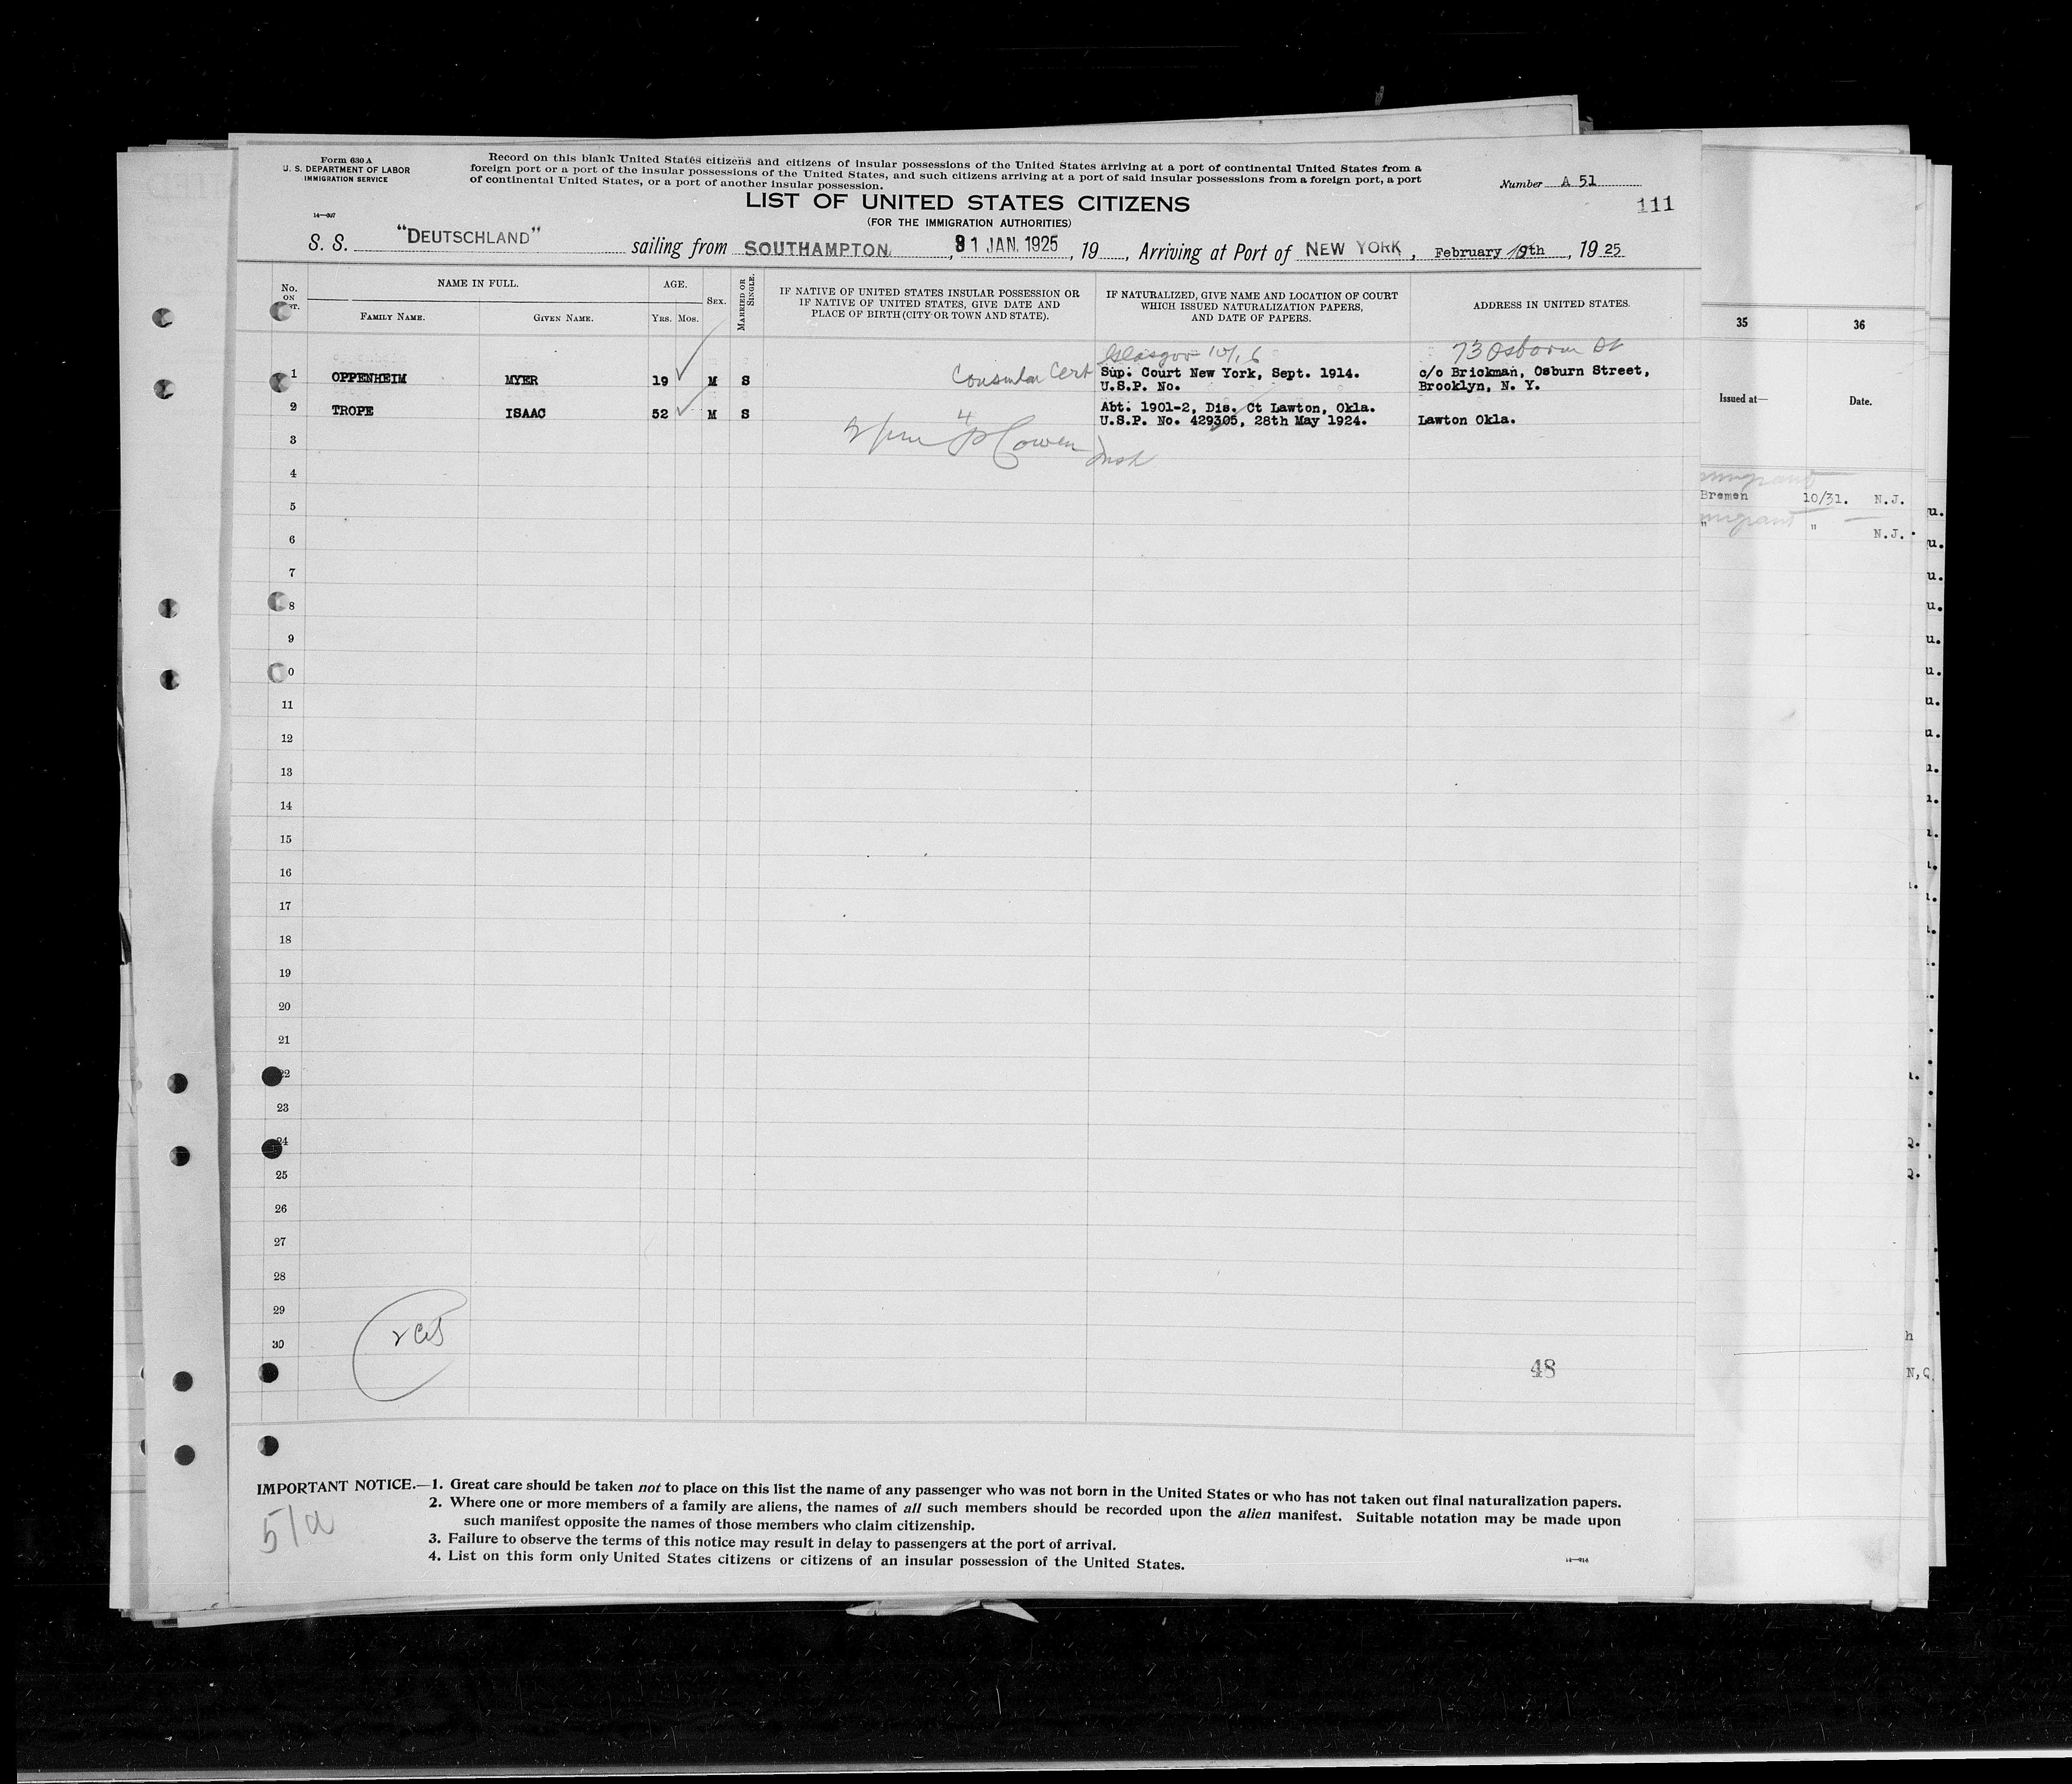 Form 630 A
U. S. DEPARTMENT OF LABOR
IMMIGRATION SERVICE
14—607
Record on this blank United States citizens and citizens of insular possessions of the United States arriving at a port of continental United States from a
foreign port or a port of the insular possessions of the United States, and such citizens arriving at a port of said insular possessions from a foreign port, a port
of continental United States, or a port of another insular possession.
Number A 51
111
LIST OF UNITED STATES CITIZENS
(FOR THE IMMIGRATION AUTHORITIES)
S. S. "DEUTSCHLAND" sailing from SOUTHAMPTON, 31 JAN. 1925, 19, Arriving at Port of NEW YORK, February 10th, 19 25
No. ON
NAME IN FULL.
FAMILY NAME.
GIVEN NAME.
AGE.
YRS. MOS.
SEX.
MARRIED OR SINGLE.
IF NATIVE OF UNITED STATES INSULAR POSSESSION OR
IF NATIVE OF UNITED STATES, GIVE DATE AND
PLACE OF BIRTH (CITY OR TOWN AND STATE).
IF NATURALIZED, GIVE NAME AND LOCATION OF COURT
WHICH ISSUED NATURALIZATION PAPERS,
AND DATE OF PAPERS.
ADDRESS IN UNITED STATES.
Glasgow 73 Osborn St
1 OPPENHEIM MYER 19 M S Consular Cert Sup. Court New York, Sept. 1914. c/o Brickman, Osburn Street,
U.S.P. No. Brooklyn, N. Y.
2 TROPE ISAAC 52 M S Abt. 1901-2, Dis. Ct Lawton, Okla.
U.S.P. No. 429305, 28th May 1924. Lawton Okla.
Cowen
Insp
3
4
5
6
7
8
9
0
11
12
13
14
15
16
17
18
19
20
21
22
23
24
25
26
27
28
29
30
48
IMPORTANT NOTICE.—1. Great care should be taken not to place on this list the name of any passenger who was not born in the United States or who has not taken out final naturalization papers.
2. Where one or more members of a family are aliens, the names of all such members should be recorded upon the alien manifest. Suitable notation may be made upon
such manifest opposite the names of those members who claim citizenship.
3. Failure to observe the terms of this notice may result in delay to passengers at the port of arrival.
4. List on this form only United States citizens or citizens of an insular possession of the United States.
51a
35 36
Issued at— Date.
Bremen 10/31. N.J.
" " N.J.